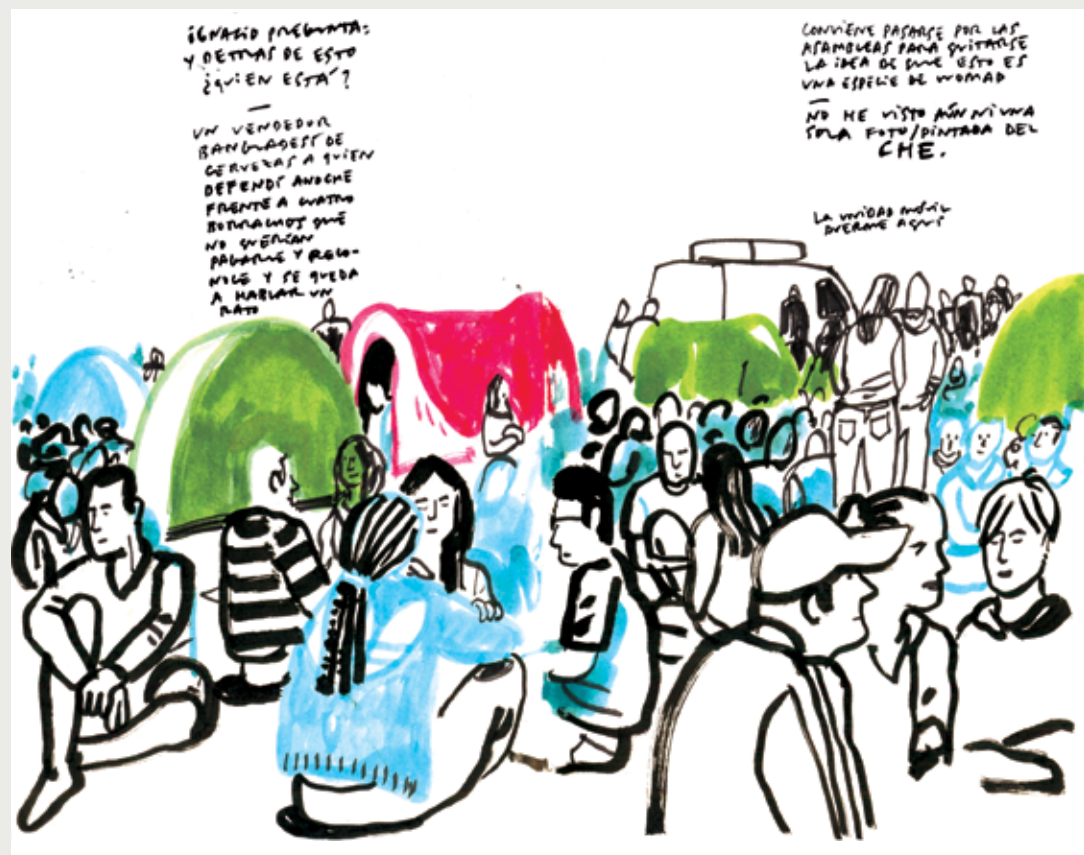 IGNACIO PREGUNTA:
Y DETRAS DE ESTO
¿QUIEN ESTÁ?
—
UN VENDEDOR
BANGLADESÍ DE
CERVEZAS A QUIEN
DEFENDÍ ANOCHE
FRENTE A CUATRO
BORRACHOS QUE
NO QUERÍAN
PAGARLE Y RECO-
NOCE Y SE QUEDA
A HABLAR UN
RATO
CONVIENE PASARSE POR LAS
ASAMBLEAS PARA QUITARSE
LA IDEA DE QUE ESTO ES
UNA ESPECIE DE WOMAD
—
NO HE VISTO AÚN NI UNA
SOLA FOTO/PINTADA DEL
CHE.
LA UNIDAD MÓVIL
DUERME AQUÍ